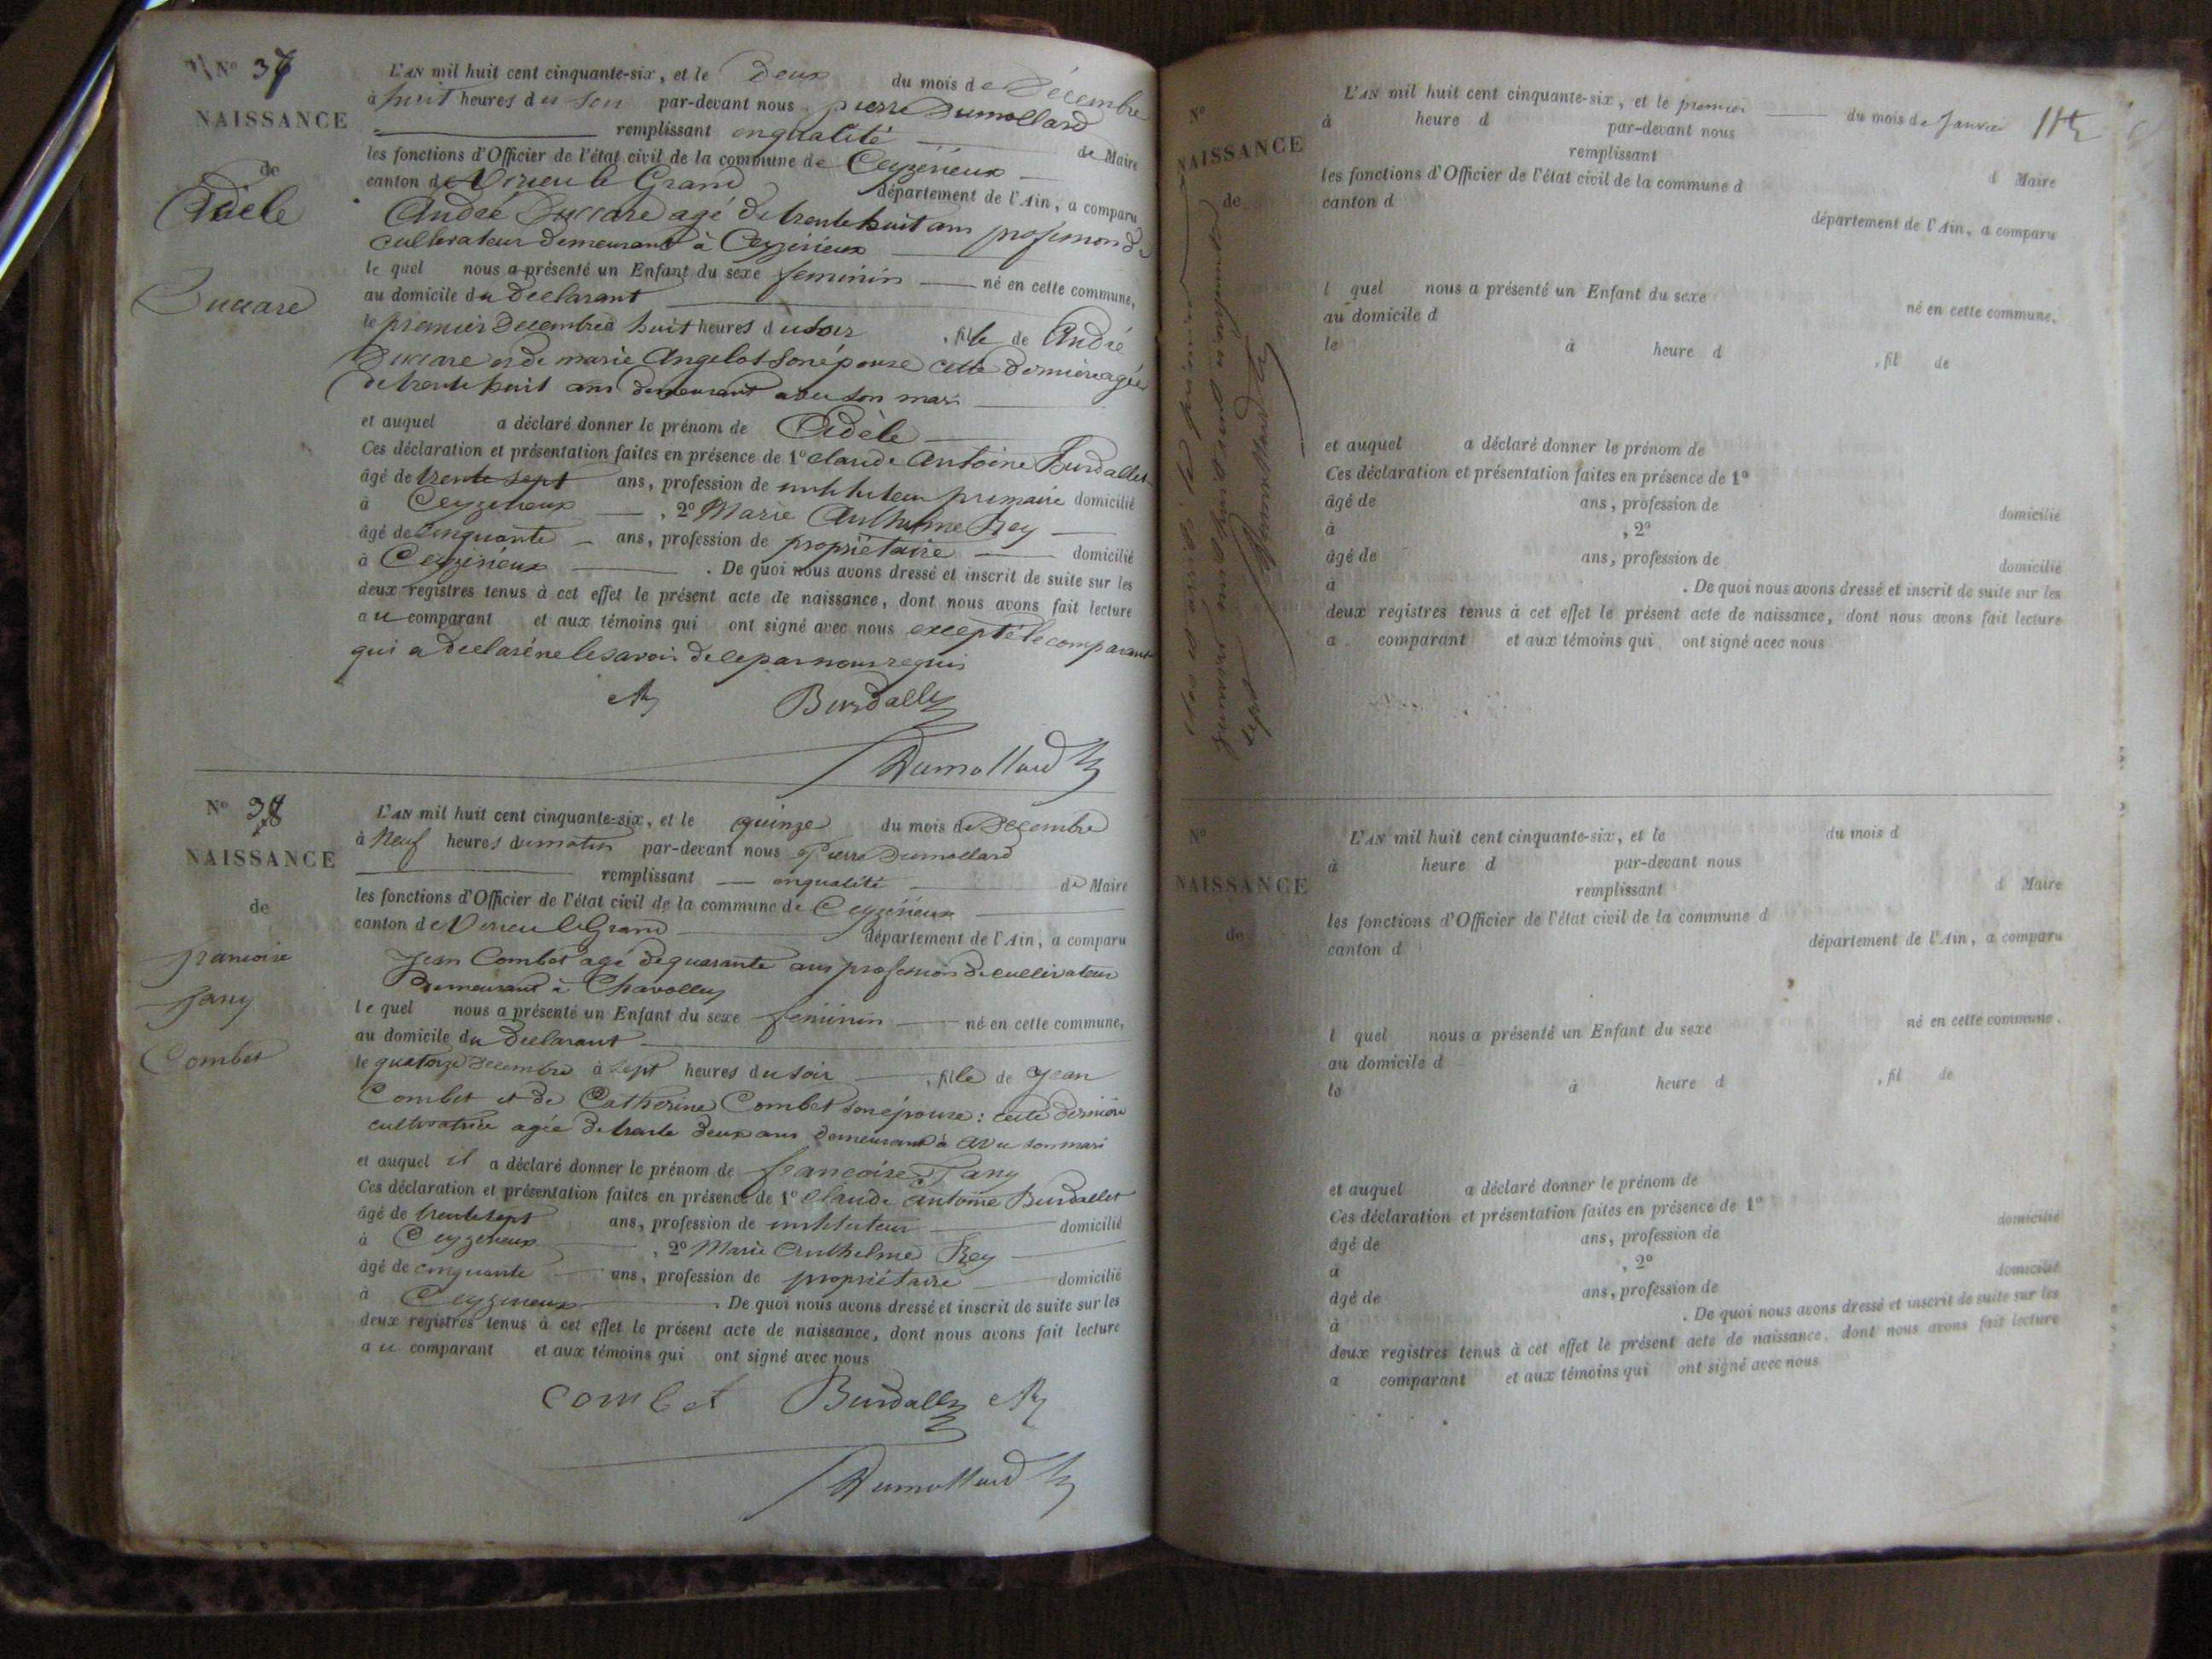 Nº 37
NAISSANCE
de
Adèle
Duccare
L'AN mil huit cent cinquante-six, et le deux du mois de Décembre
à huit heures du soir par-devant nous pierre Dumollard
remplissant en qualité de Maire
les fonctions d'Officier de l'état civil de la commune de Ceyzérieux
canton de Virieu le Grand département de l'Ain, a comparu
André Duccare agé de trente huit ans profession de
cultivateur demeurant à Ceyzérieux
le quel nous a présenté un Enfant du sexe feminin né en cette commune,
au domicile du Declarant
le premier Decembre à huit heures du soir, fille de André
Duccare et de marie Angelot son épouse cette dernière agée
de trente huit ans demeurant avec son mari
et auquel a déclaré donner le prénom de Adèle
Ces déclaration et présentation faites en présence de 1º claude Antoine Burdallet
âgé de trente sept ans, profession de instituteur primaire domicilié
à Ceyzerieux, 2º Marie Anthelme Rey
âgé de Cinquante ans, profession de propriétaire domicilié
à Ceyzérieux. De quoi nous avons dressé et inscrit de suite sur les
deux registres tenus à cet effet le présent acte de naissance, dont nous avons fait lecture
au comparant et aux témoins qui ont signé avec nous excepté le comparant
qui a declaré ne le savoir de ce par nous requis
Rey Burdallet
Dumollard
Nº 38
NAISSANCE
de
francoise
fany
Combet
L'AN mil huit cent cinquante-six, et le quinze du mois de Decembre
à Neuf heures du matin par-devant nous Pierre Dumollard
remplissant en qualité de Maire
les fonctions d'Officier de l'état civil de la commune de Ceyzérieux
canton de Virieu le Grand département de l'Ain, a comparu
Jean Combet agé de quarante ans profession de cultivateur
Demeurant à Chavolley
le quel nous a présenté un Enfant du sexe feminin né en cette commune,
au domicile du Declarant
le quatorze Decembre à sept heures du soir, fille de Jean
Combet et de Catherine Combet son épouse : cette dernière
cultivatrice agée de trente deux ans demeurant à avec son mari
et auquel il a déclaré donner le prénom de francoise Fany
Ces déclaration et présentation faites en présence de 1º Claude Antoine Burdallet
âgé de trente sept ans, profession de instituteur domicilié
à Ceyzerieux, 2º Marie Anthelme Rey
âgé de cinquante ans, profession de propriétaire domicilié
à Ceyzerieux. De quoi nous avons dressé et inscrit de suite sur les
deux registres tenus à cet effet le présent acte de naissance, dont nous avons fait lecture
au comparant et aux témoins qui ont signé avec nous
combet Burdallet Rey
Dumollard
Nº
NAISSANCE
de
L'AN mil huit cent cinquante-six, et le premier du mois de Janvier
à heure d par-devant nous
remplissant d Maire
les fonctions d'Officier de l'état civil de la commune d
canton d département de l'Ain, a comparu
l quel nous a présenté un Enfant du sexe né en cette commune,
au domicile d
le à heure d, fil de
et auquel a déclaré donner le prénom de
Ces déclaration et présentation faites en présence de 1º
âgé de ans, profession de domicilié
à, 2º
âgé de ans, profession de domicilié
à. De quoi nous avons dressé et inscrit de suite sur les
deux registres tenus à cet effet le présent acte de naissance, dont nous avons fait lecture
a comparant et aux témoins qui ont signé avec nous
Nº
NAISSANCE
de
L'AN mil huit cent cinquante-six, et le du mois d
à heure d par-devant nous
remplissant d Maire
les fonctions d'Officier de l'état civil de la commune d
canton d département de l'Ain, a comparu
l quel nous a présenté un Enfant du sexe né en cette commune.
au domicile d
le à heure d, fil de
et auquel a déclaré donner le prénom de
Ces déclaration et présentation faites en présence de 1º
âgé de ans, profession de domicilié
à, 2º
âgé de ans, profession de domicilié
à. De quoi nous avons dressé et inscrit de suite sur les
deux registres tenus à cet effet le présent acte de naissance, dont nous avons fait lecture
a comparant et aux témoins qui ont signé avec nous